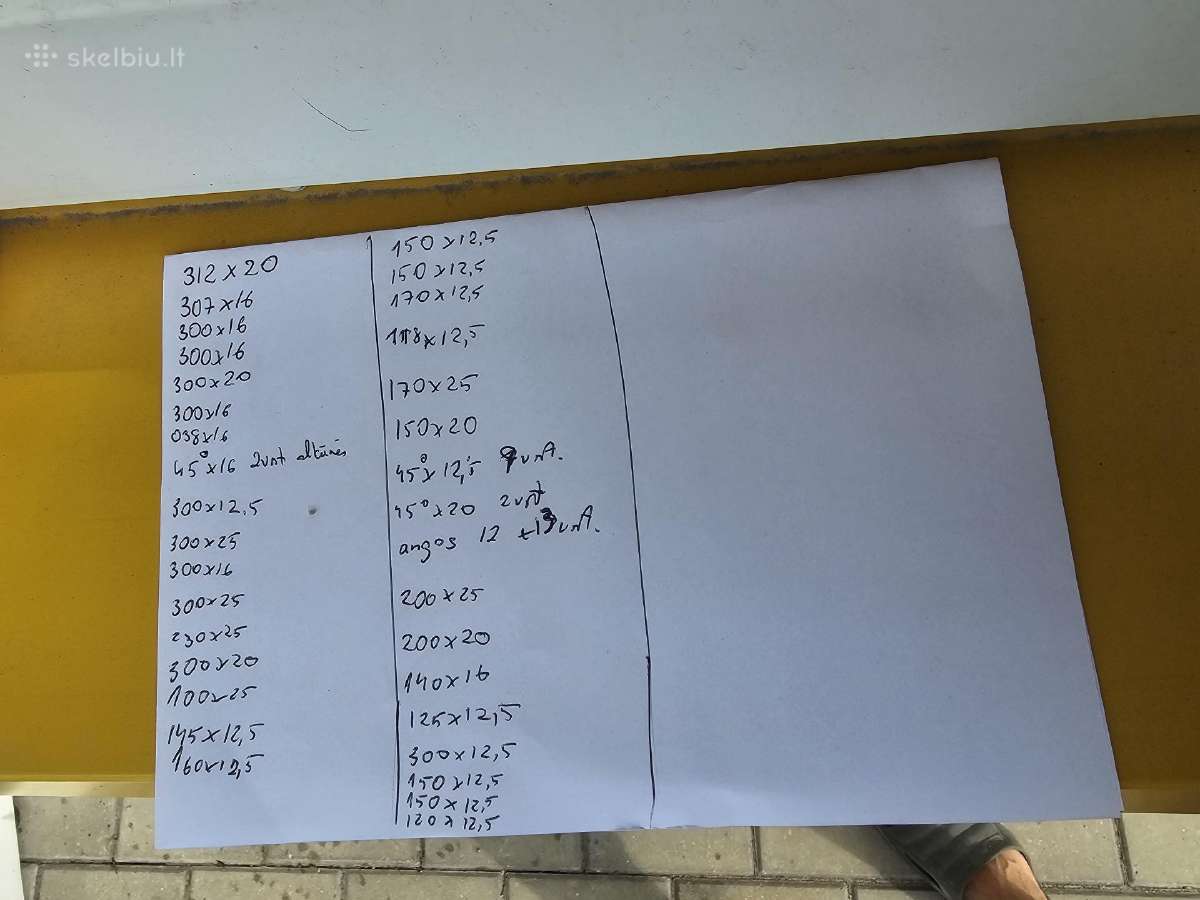 skelbiu.lt
312 x 20
307 x 16
300 x 16
300 x 16
300 x 20
300 x 16
038 x 16
45° x 16 2vnt
300 x 12,5
300 x 25
300 x 16
300 x 25
230 x 25
300 x 20
100 x 25
145 x 12,5
160 x 12,5
150 x 12,5
150 x 12,5
170 x 12,5
118 x 12,5
170 x 25
150 x 20
45° x 12,5 9vnt.
45° x 20 2vnt
angos 12 x 13vnt.
200 x 25
200 x 20
140 x 16
125 x 12,5
300 x 12,5
150 x 12,5
150 x 12,5
120 x 12,5